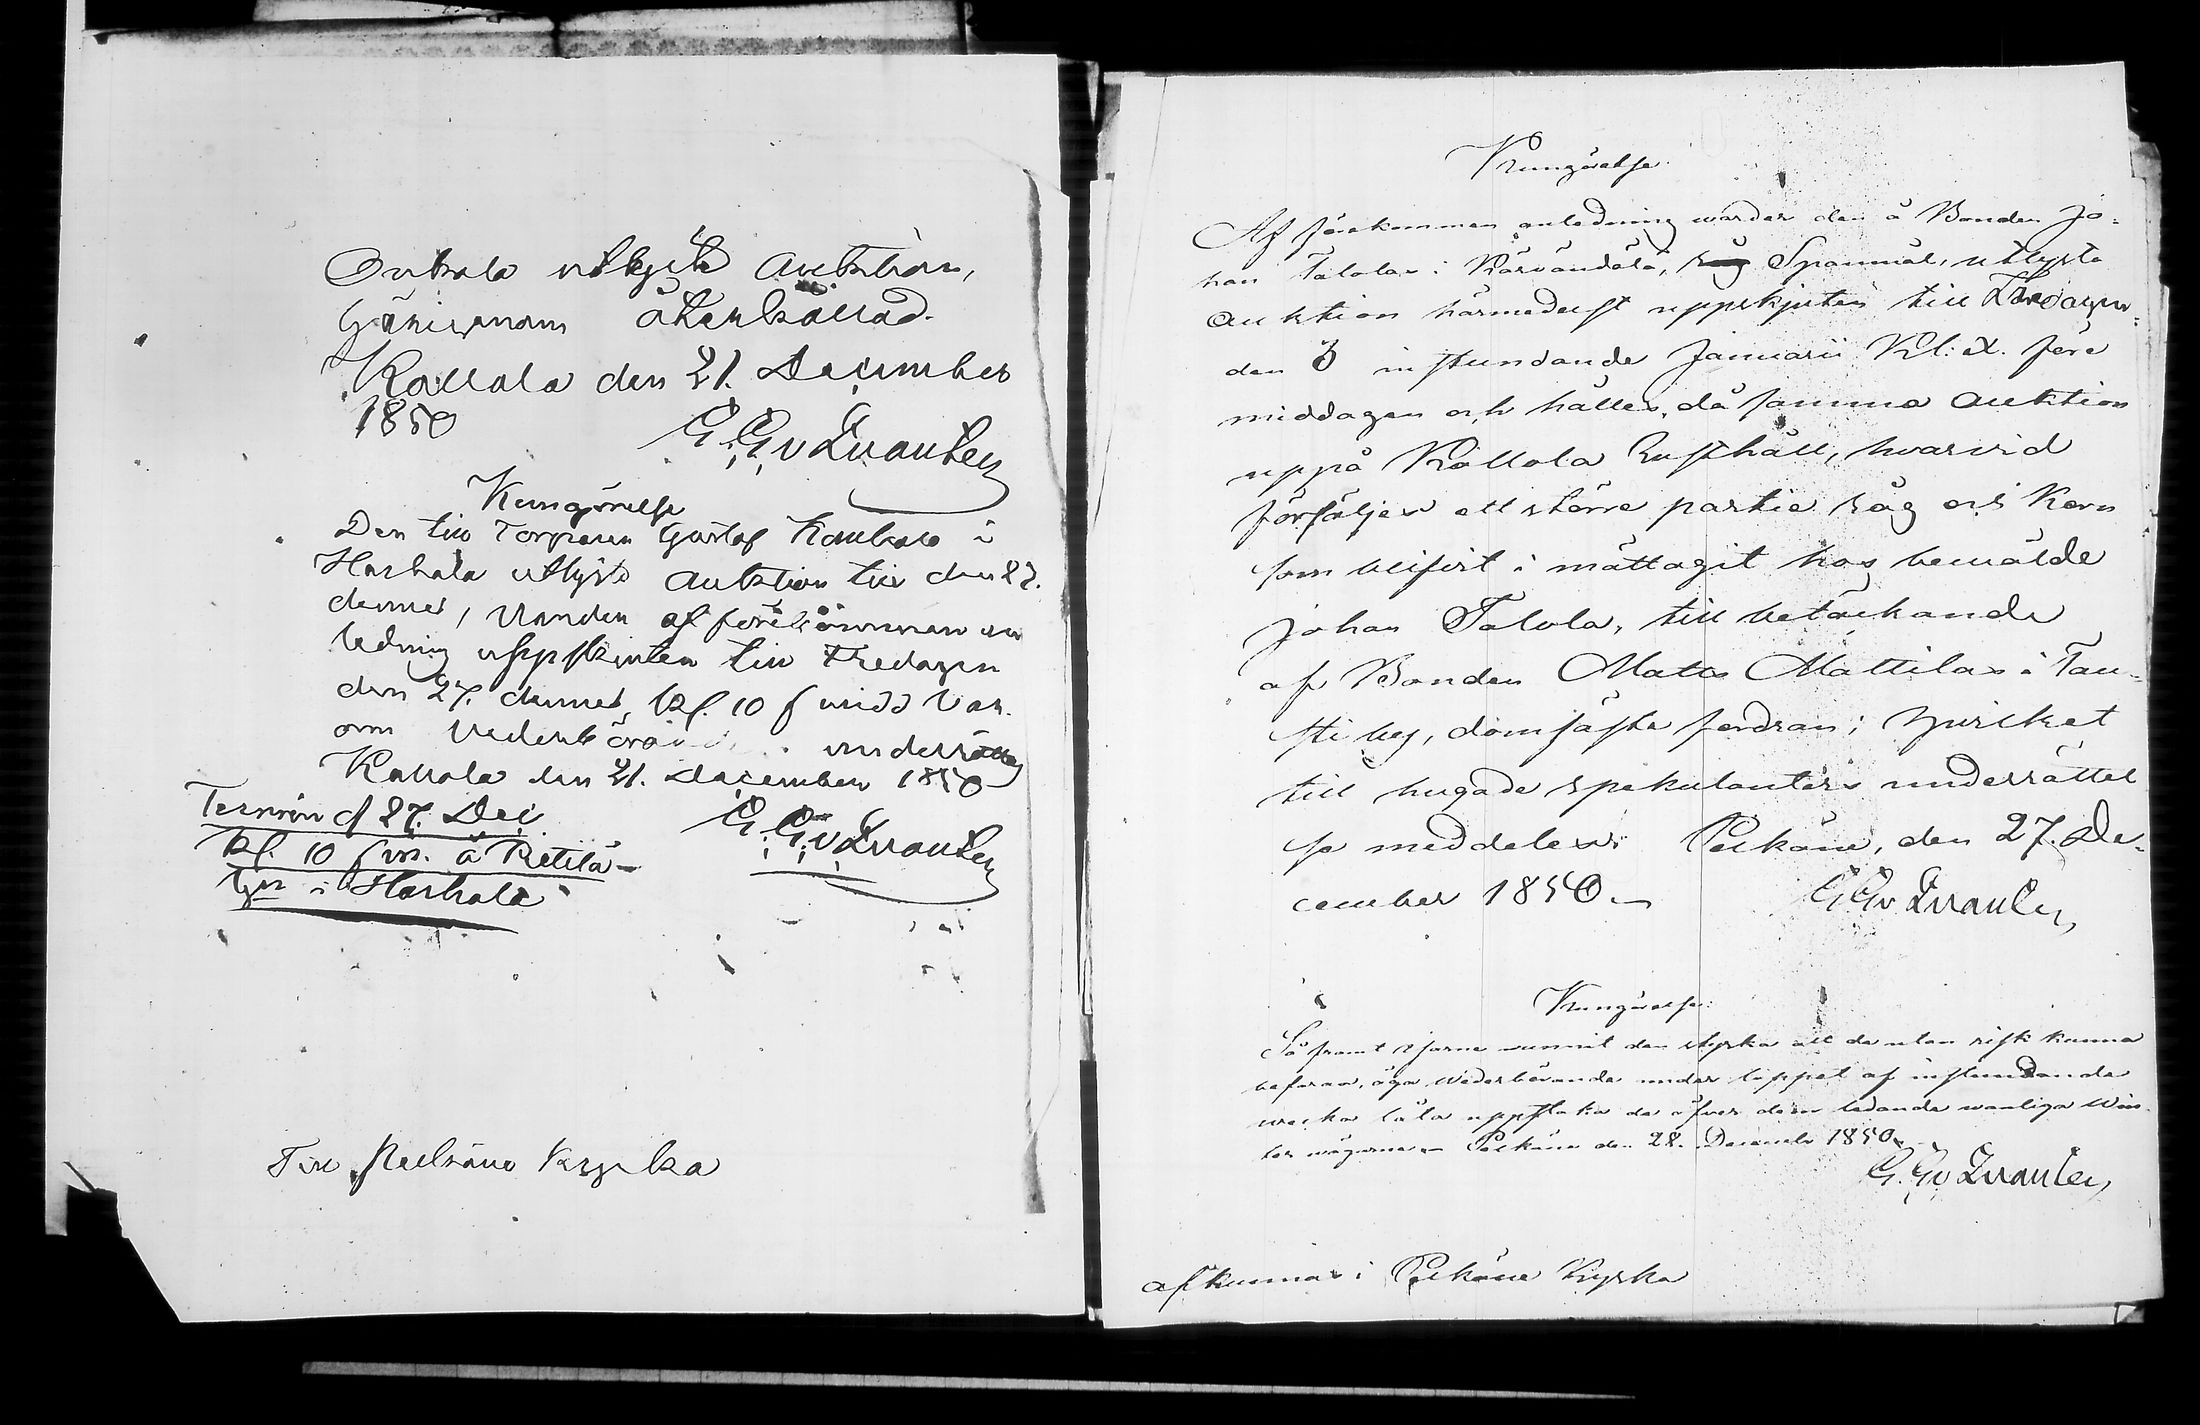 utlyste Auktion,
härigenom återkallad.
Kallala den 21. December
1850
G. G. v Qvanten
Kungörelse
Den till Torparen Gustaf i
Harhala utlyste Auktion till den 27.
dennes, varder af förekommen an
ledning uppskjuten till Fredagen
den 27. dennes, Kl. 10 f midd var
om Vederbörande underrättas
Kallala den 21. December 1850
G. G. v Qvanten
Termin d 27. Dec
Kl. 10 f m. å Retilä
i Harhala
Till Pelkäne Kyrka
Kungörelse
Af förekommen anledning warder den å Bonden Jo-
han Talolas i Kärvändälä, Spanmål, utlyste
Auktion härmedelst uppskjuten till
den 3 instundande Januarii Kl: X. före
middagen och hålles då samma Auktion
uppå Kallola Rusthåll, hvarvid
försäljes ett större partie råg och Korn
som blifvit i mättagit hos bemälde
Johan Talola, till betäckande
af Bonden Matts Mattilas i Tau-
sti by, domfäste fordran; hvilket
till hugade spekulanters underrättel
se meddelas. Pelkäne, den 27. De-
cember 1850.
G. G. v Qvanten
Kungörelse.
Så framt isarne vunnit den styrka att de utan risk kunna
befaras, äga Wederbörande under loppet af instundande
wecka låta uppstaka de öfver dem ledande wanliga Win-
ter vägarne. Pelkäne den 28. December 1850.
G. G. v Qvanten
afkunnas i Pelkäne Kyrka